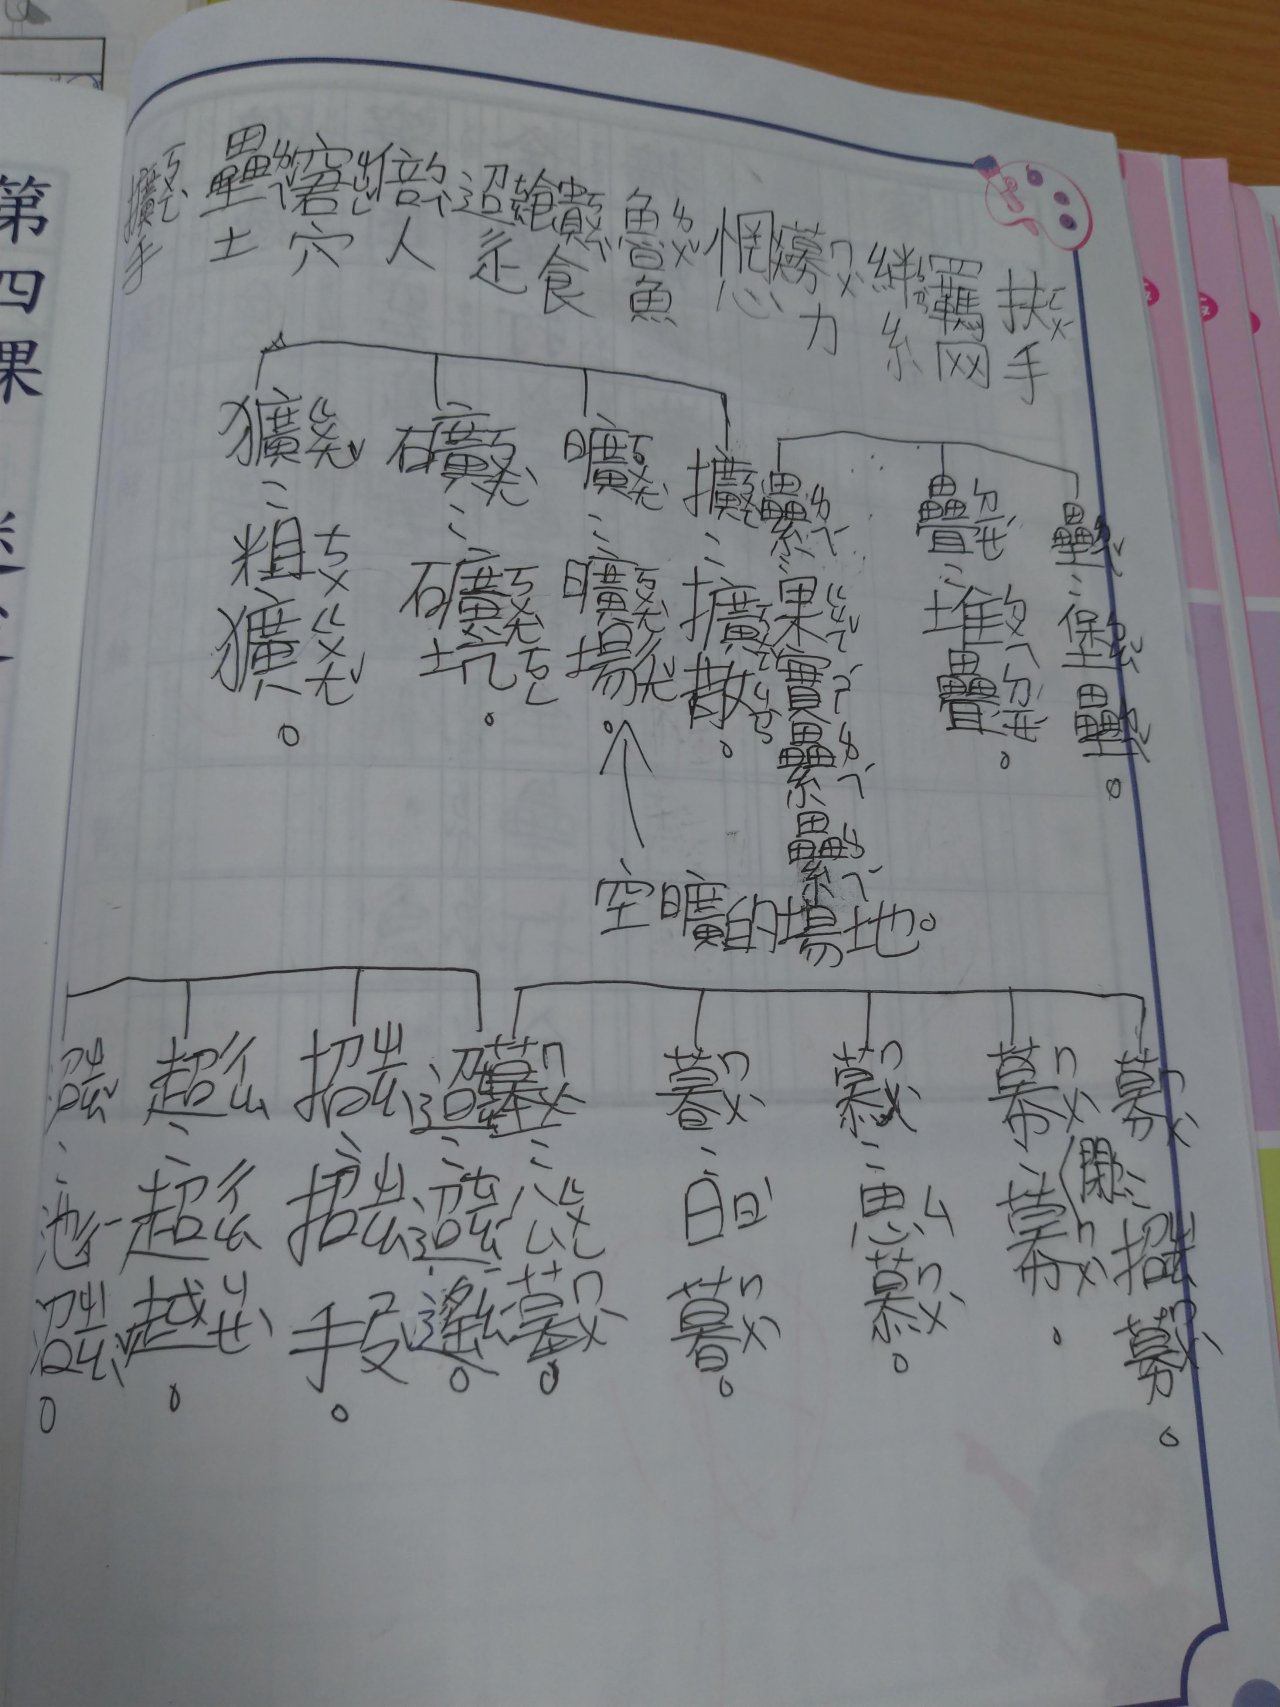 扶ㄈㄨˊ手
羈网
絆ㄅㄢˋ糸
募ㄇㄨˋ力
惘心
魯ㄌㄨˇ魚
饋ㄎㄨㄟˋ食
迢辵
倍ㄅㄟˋ人
窘ㄐㄩㄥˇ穴
壘ㄌㄟˇ土
擴ㄎㄨㄛˋ手
壘ㄌㄟˇ:堡ㄅㄠˇ壘ㄌㄟˇ。
疊ㄉㄧㄝˊ:堆ㄉㄨㄟ疊ㄉㄧㄝˊ。
纍ㄌㄟˊ:果ㄍㄨㄛˇ實ㄕˊ纍ㄌㄟˊ纍ㄌㄟˊ
擴:擴散ㄙㄢˋ。
曠ㄎㄨㄤˋ:曠ㄎㄨㄤˋ場ㄔㄤˇ。
空曠的場地。
礦ㄎㄨㄤˋ:礦ㄎㄨㄤˋ坑ㄎㄥ。
獷ㄍㄨㄤˇ:粗ㄘㄨ獷ㄍㄨㄤˇ。
募ㄇㄨˋ:招ㄓㄠ募ㄇㄨˋ。
幕ㄇㄨˋ:(開)幕ㄇㄨˋ。
慕ㄇㄨˋ:思ㄙ慕ㄇㄨˋ。
暮ㄇㄨˋ:日暮ㄇㄨˋ。
墓ㄇㄨˋ:公ㄍㄨㄥ墓ㄇㄨˋ。
迢:迢迢。
招ㄓㄠ:招ㄓㄠ手。
超ㄔㄠ:超ㄔㄠ越ㄩㄝˋ。
沼ㄓㄠˇ:池沼ㄓㄠˇ。
第四課